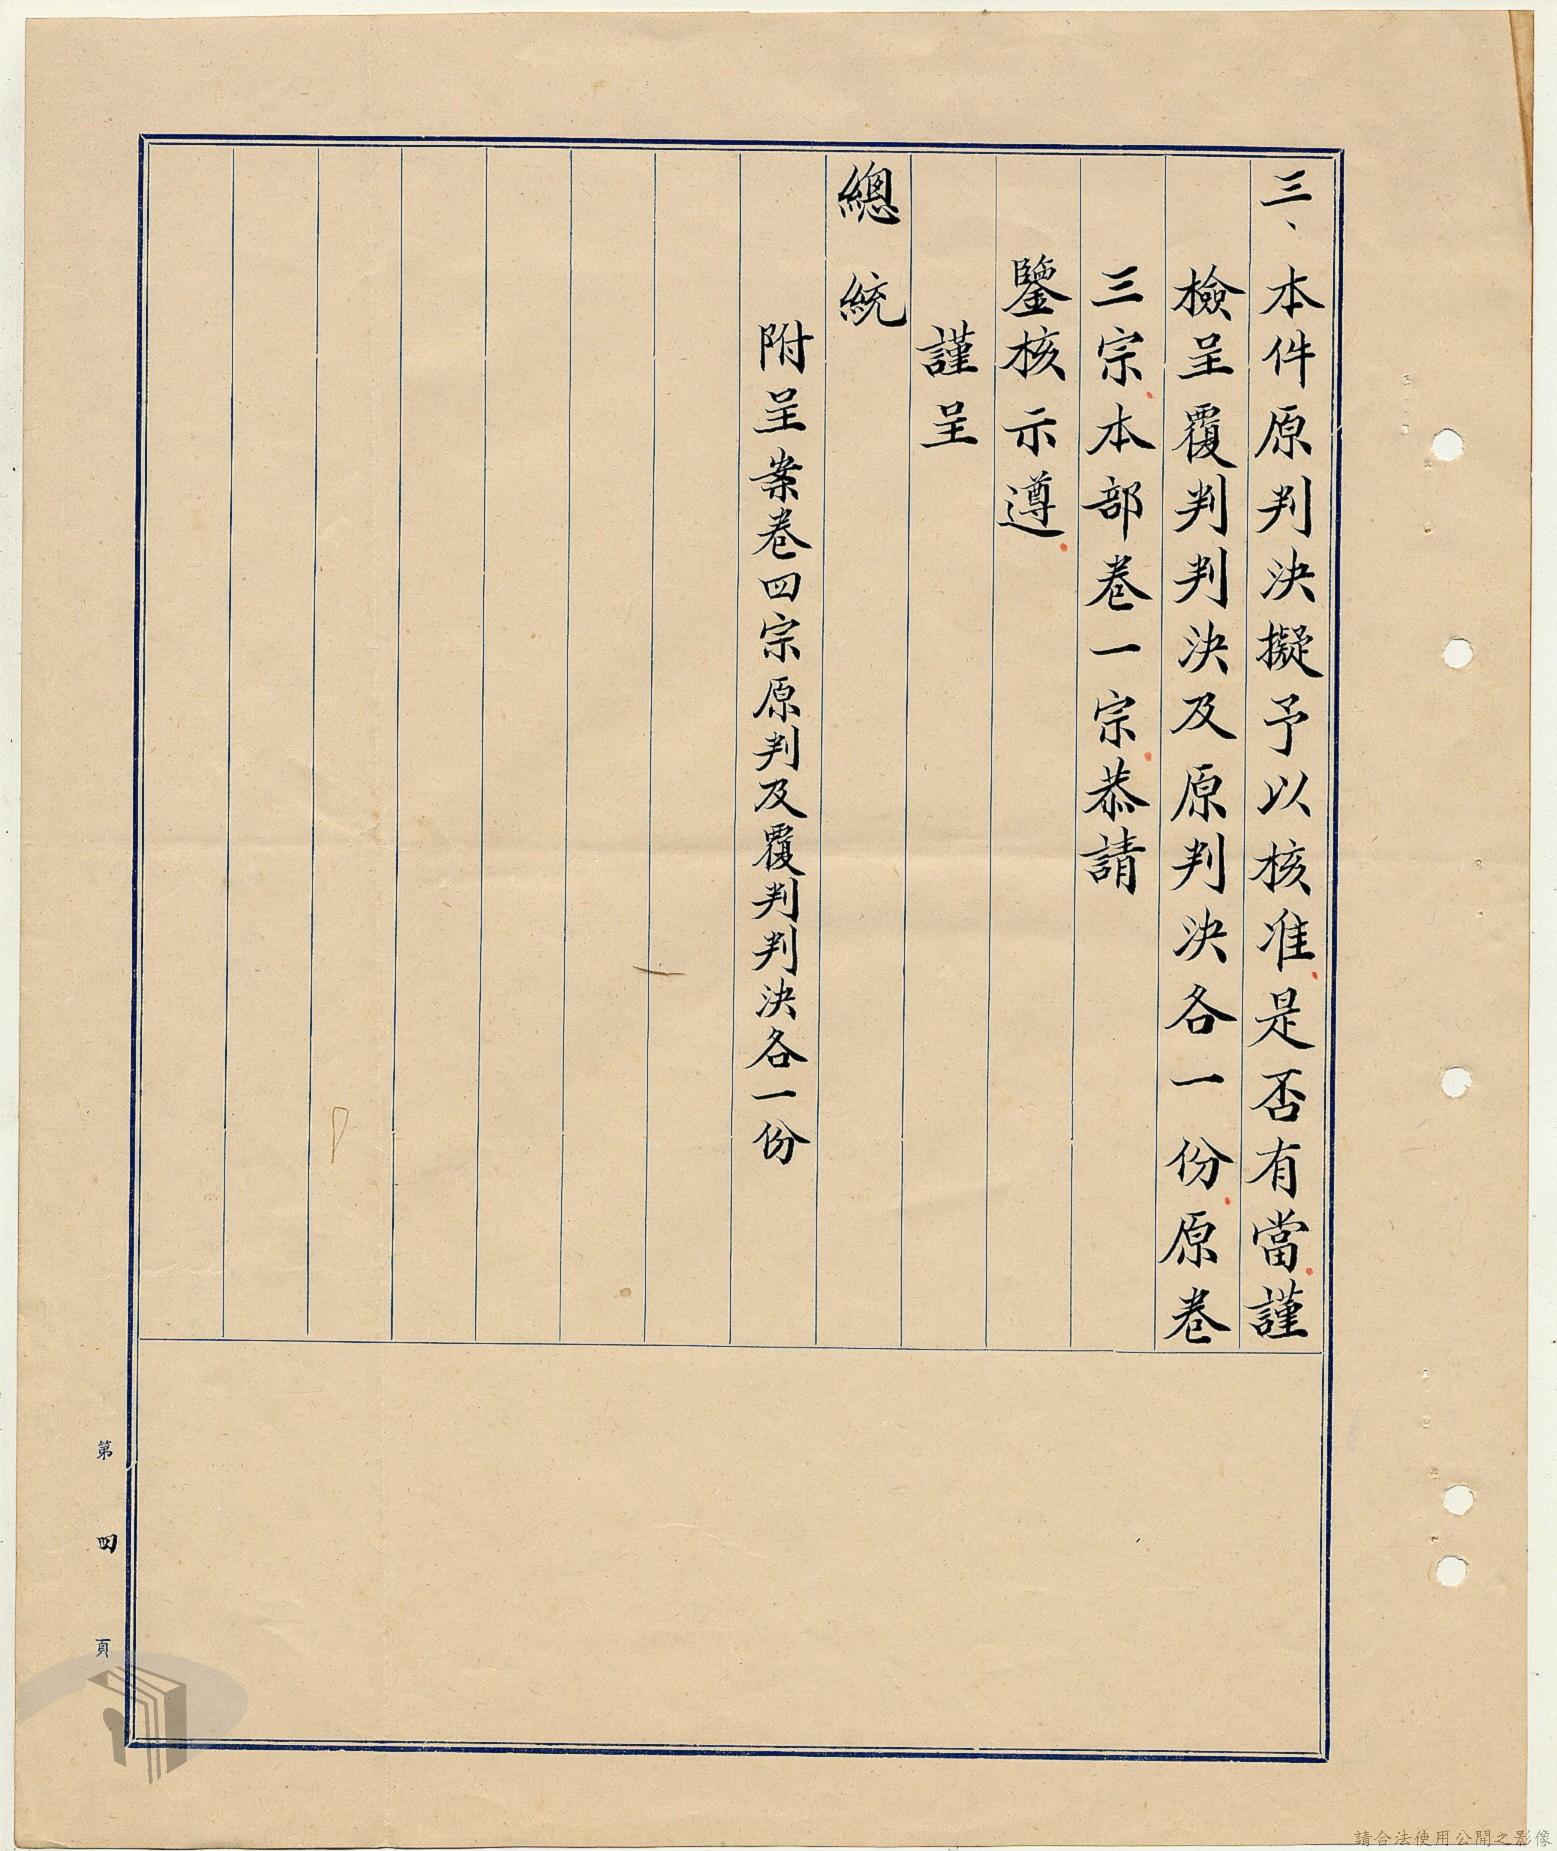 三、本件原判決擬予以核准是否有當謹
檢呈覆判判決及原判決各一份原卷
三宗本部卷一宗恭請
鑒核示遵
謹呈
總統
附呈案卷四宗原判及覆判判決各一份
第四頁
請合法使用公開之影像